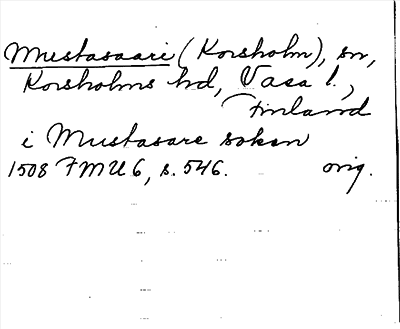 Mustasaari (Korsholm), sn,
Korsholms hd, Vasa l.,
Finland
i Mustasare soken
1508 FMU 6, s. 546. orig.